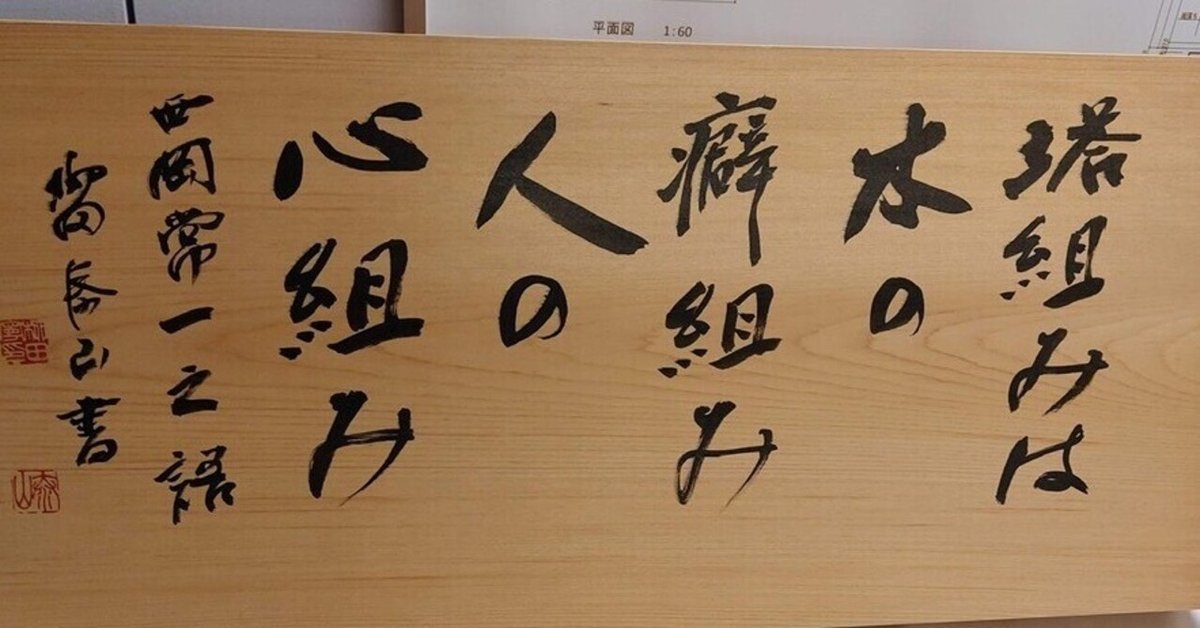 平面図 1:60
塔組みは
木の
癖組み
人の
心組み
西岡常一之語
柳田泰山書
泰山